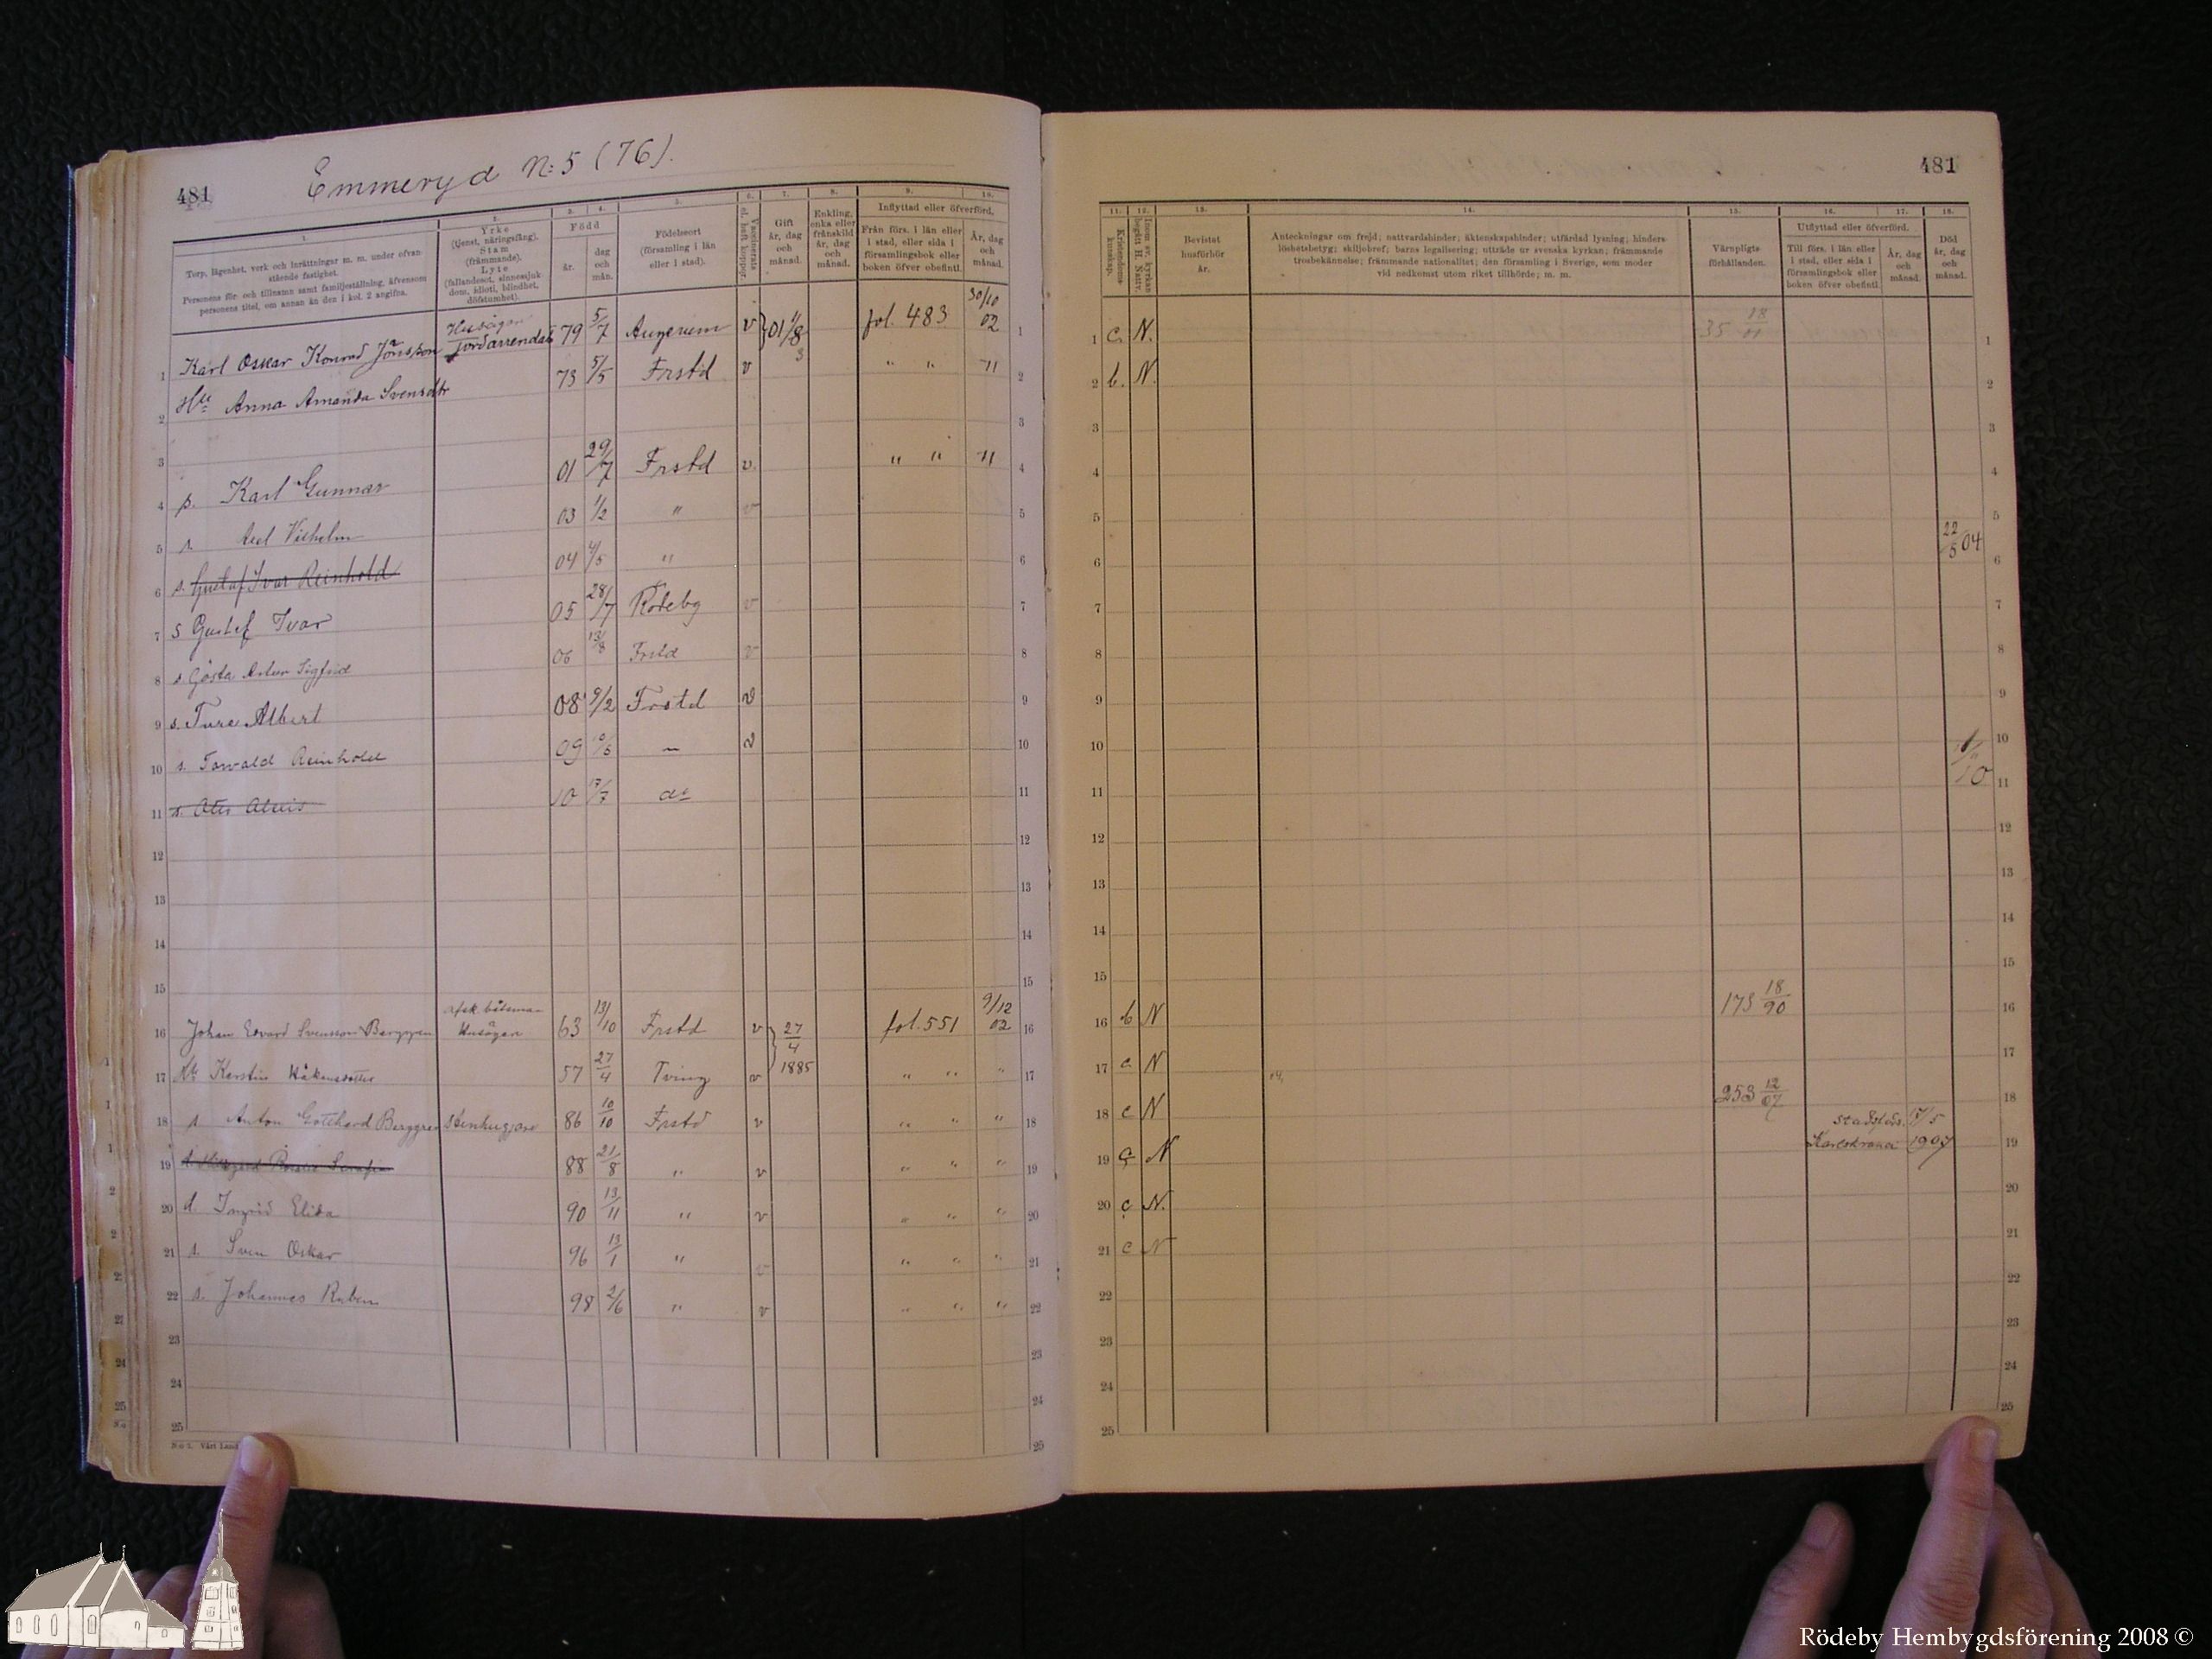 481
Emmeryd N:5 (76).
1.
Torp, lägenhet, verk och inrättningar m. m. under ofvan-
stående fastighet.
Personens för- och tillnamn samt familjeställning, äfvensom
personens titel, om annan än den i kol. 2 angifna.
2.
Yrke
(tjenst, näringsfång).
Stam
(främmande).
Lyte
(fallandesot, sinnessjuk-
dom, idioti, blindhet,
döfstumhet).
3. 4.
Född
år.
dag
och
mån.
5.
Födelseort
(församling i län
eller i stad).
6.
Vaccinerats
el. haft koppor.
7.
Gift
år, dag
och
månad.
8.
Enkling,
enka eller
frånskild
år, dag
och
månad.
9. 10.
Inflyttad eller öfverförd.
Från förs. i län eller
i stad, eller sida i
församlingsbok eller
boken öfver obefintl.
År, dag
och
månad.
1 Karl Oskar Konrad Jönsson Husägare Jordarrendat. 79 5/7 Augerum v 01 fol. 483 30/10 02 1
2 Hu Anna Amanda Svensdtr 73 5/5 Frstd v " " " 2
3 3
4 s. Karl Gunnar 01 29/7 Frstd v. " " " 4
5 s. Axel Vilhelm 03 1/2 " v 5
6 s. Gustaf Ivar Reinhold 04 4/5 " 6
7 s Gustef Ivar 05 28/7 Rödeby v 7
8 s Gösta Artur Sigfrid 06 13/8 Frstd v 8
9 s. Ture Albert 08 9/2 Frstd v 9
10 s. Torvald Reinhold 09 v 10
11 s. 10 17/7 do 11
12 12
13 13
14 14
15 15
16 Johan Edvard Svensson Berggren afsk. båtsman Husägare 63 13/10 Frstd v 27/4 1885 fol. 551 9/12 02 16
17 Hu Kerstin Håkansdotter 57 27/4 Tving v " " " 17
18 s Anton Gotthard Berggren Stenhuggare 86 10/10 Frstd v " " " 18
19 d 88 21/8 " v " " " 19
20 d. Ingrid Elida 90 13/11 " v " " " 20
21 s. Sven Oskar 96 13/1 " v " " " 21
22 s. Johannes Ruben 98 2/6 " v " " " 22
23 23
24 24
25 25
481
11.
Kristendoms-
kunskap.
12.
13.
Bevistat
husförhör
år.
14.
Anteckningar om frejd; nattvardshinder; äktenskapshinder; utfärdad lysning; hinders-
löshetsbetyg; skiljobref; barns legalisering; utträde ur svenska kyrkan; främmande
trosbekännelse; främmande nationalitet; den församling i Sverige, som moder
vid nedkomst utom riket tillhörde; m. m.
15.
Värnpligts-
förhållanden.
16. 17.
Utflyttad eller öfverförd.
Till förs. i län eller
i stad, eller sida i
församlingsbok eller
boken öfver obefintl.
År, dag
och
månad.
18.
Död
år, dag
och
månad.
1 c N. 35 18/11 1
2 b. N. 2
3 3
4 4
5 5
6 22/5 04 6
7 7
8 8
9 9
10 10
11 11
12 12
13 13
14 14
15 15
16 b N 173 18/90 16
17 c N 17
18 c N 253 12/07 18
19 c N Stadsförs. Karlskrona 17/5 1907 19
20 c N. 20
21 c N
22 22
23 23
24 24
25 25
Rödeby Hembygdsförening 2008 ©